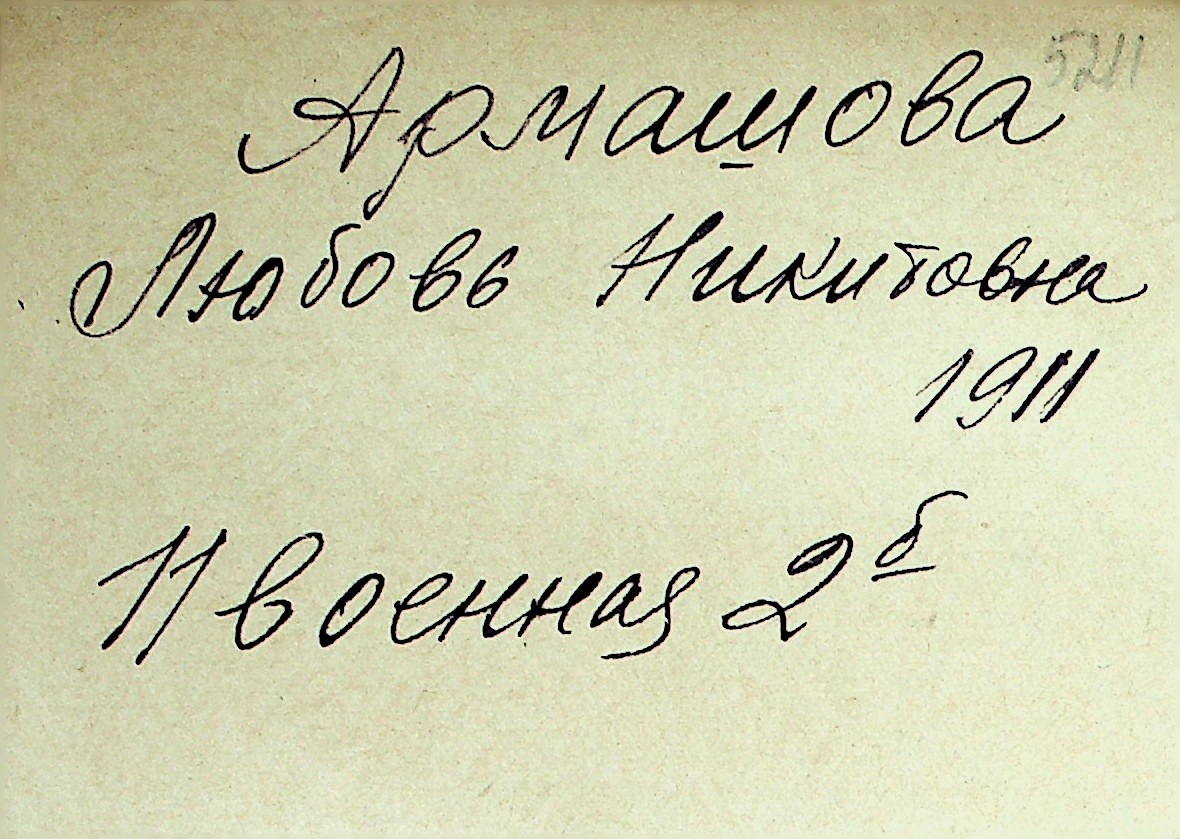 5211
Армашова
Любовь Никитовна
1911
11 военная 2б